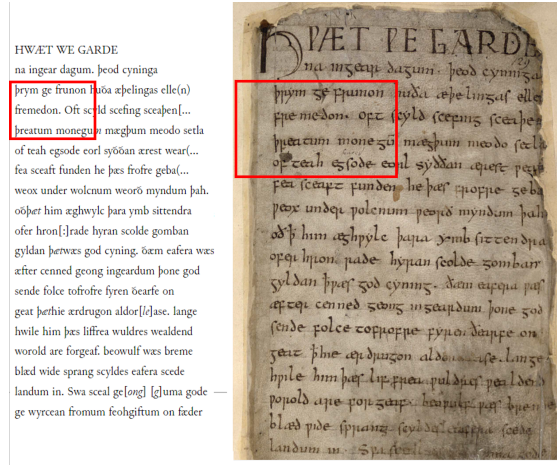 HWÆT WE GARDE
na ingear dagum. þeod cyninga
þrym ge frunon huða æþelingas elle(n)
fremedon. Oft scyld scefing sceaþen[...
þreatum monegum mægþum meodo setla
of teah egsode eorl syððan ærest wear(...
fea sceaft funden he þæs frofre geba(...
weox under wolcnum weorð myndum þah.
oðþæt him æghwylc þara ymb sittendra
ofer hron[:]rade hyran scolde gomban
gyldan þætwæs god cyning. ðæm eafera wæs
æfter cenned geong ingeardum þone god
sende folce tofrofre fyren ðearfe on
geat þæthie ærdrugon aldor[le]ase. lange
hwile him þæs liffrea wuldres wealdend
worold are forgeaf. beowulf wæs breme
blæd wide sprang scyldes eafera scede
landum in. Swa sceal ge[ong] [g]uma gode
ge wyrcean fromum feohgiftum on fæder
HǷÆT ǷE GARDE
na ingear dagum. þeod cyninga
þrym ge frunon huða æþelingas elle
fremedon. oft scyld scefing sceaþe
þreatum monegū mægþum meodo setla
of teah egsode eorl syððan ærest
fea sceaft funden he þæs frofre geba
ƿeox under ƿolcnum ƿeorð myndum þah
oðꝥ him æghƿylc þara ymb sittendra
ofer hron rade hyran scolde gomban
gyldan þæs god cyning. ðæm eafera ƿæs
æfter cenned geong ingeardum þone god
sende folce tofrofre fyren ðearfe on
geat ꝥhie ærdrugon aldor ase. lange
hƿile him þæs liffrea ƿuldres ƿealdend
ƿorold are forgeaf. beoƿulf ƿæs breme
blæd ƿide sprang scyldes eafera scede
landum in.